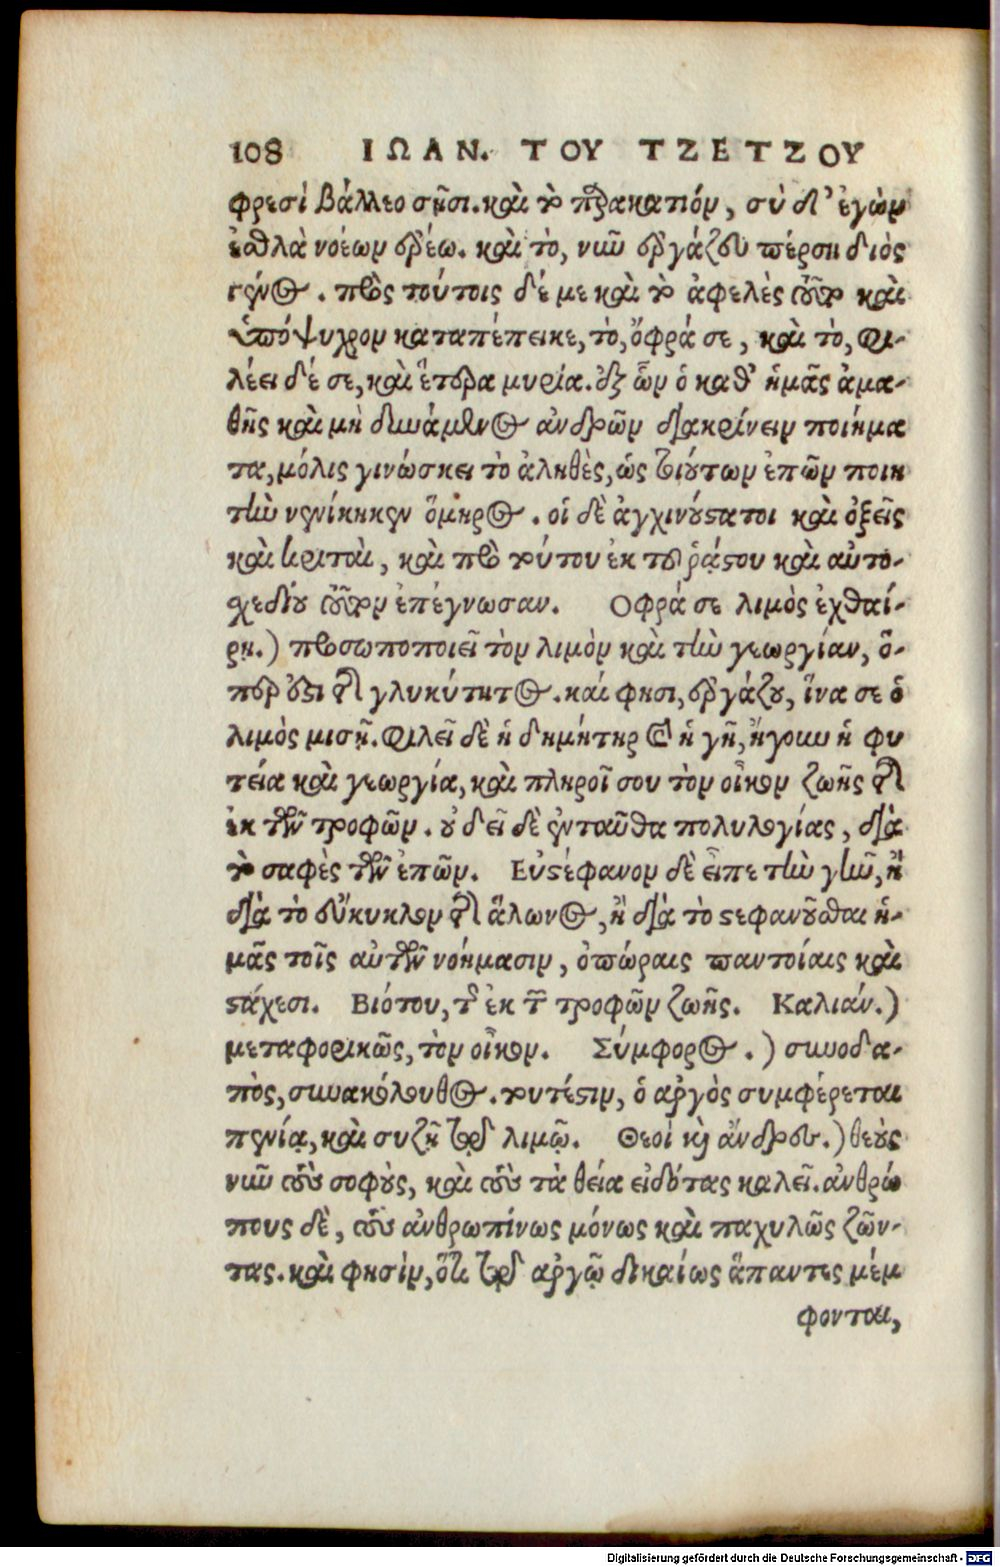 108 ΙΩΑΝ. ΤΟΥ ΤΖΕΤΖΟΥ
φρεσὶ βάλλεο σῇσι. καὶ τὸ πεζακατιόν, σὺ δ' ἐγὼν
ἐσθλὰ νοέων ἐρέω. καὶ τὸ, νῦν ἐργάζου πέρση διὸς
γένος. πρὸς τούτοις δέ με καὶ τὸ ἀφελὲς οὗτον καὶ
ὑπόψυχρον καταπέπεικε, τὸ, ὄφρά σε, καὶ τὸ, φι-
λέει δέ σε, καὶ ἕτερα μυρία. ἐξ ὧν ὁ καθ' ἡμᾶς ἀμα-
θὴς καὶ μὴ δυνάμενος ἀνδρῶν διακρίνειν ποιήμα
τα, μόλις γινώσκει τὸ ἀληθὲς, ὡς τοιούτων ἐπῶν ποιη
τὴν νενίκηκεν ὅμηρος. οἱ δὲ ἀγχινούστατοι καὶ ὀξεῖς
καὶ κριταὶ, καὶ πρὸ τούτου ἐκ τοῦ ῥάστου καὶ αὐτο-
σχεδίου οὗτον ἐπέγνωσαν. Οφρά σε λιμὸς ἐχθαί-
ρῃ.) προσωποποιεῖ τὸν λιμὸν καὶ τὴν γεωργίαν, ὅ-
περ ἐστὶ τῆς γλυκύτητος. καί φησι, ἐργάζου, ἵνα σε ὁ
λιμὸς μισῇ. φιλεῖ δὲ ἡ δημήτηρ καὶ ἡ γῆ, ἤγουν ἡ φυ
τεία καὶ γεωργία, καὶ πληροῖ σου τὸν οἶκον ζωῆς τῆς
ἐκ τῶν τροφῶν. οὐ δεῖ δὲ ἐνταῦθα πολυλογίας, διὰ
τὸ σαφὲς τῶν ἐπῶν. Εὐστέφανον δὲ εἶπε τὴν γῆν, ἢ
διὰ τὸ εὔκυκλον τῆς ἅλωνος, ἢ διὰ τὸ στεφανοῦσθαι ἡ-
μᾶς τοῖς αὐτῶν νοήμασιν, ὀπώραις παντοίαις καὶ
στάχεσι. Βιότου, τῆς ἐκ τῶν τροφῶν ζωῆς. Καλιάν.)
μεταφορικῶς, τὸν οἶκον. Σύμφορος.) συνοδα-
πὸς, συνακόλουθος. τουτέστιν, ὁ ἀργὸς συμφέρεται
πενίᾳ, καὶ συζῇ τῷ λιμῷ. Θεοὶ καὶ ἄνδρες.) θεοὺς
νῦν τοὺς σοφοὺς, καὶ τοὺς τὰ θεία εἰδότας καλεῖ. ἀνθρώ
πους δὲ, τοὺς ἀνθρωπίνως μόνως καὶ παχυλῶς ζῶν-
τας. καὶ φησὶν, ὅτι τῷ ἀργῷ δικαίως ἅπαντες μέμ
φονται,
Digitalisierung gefördert durch die Deutsche Forschungsgemeinschaft - DFG